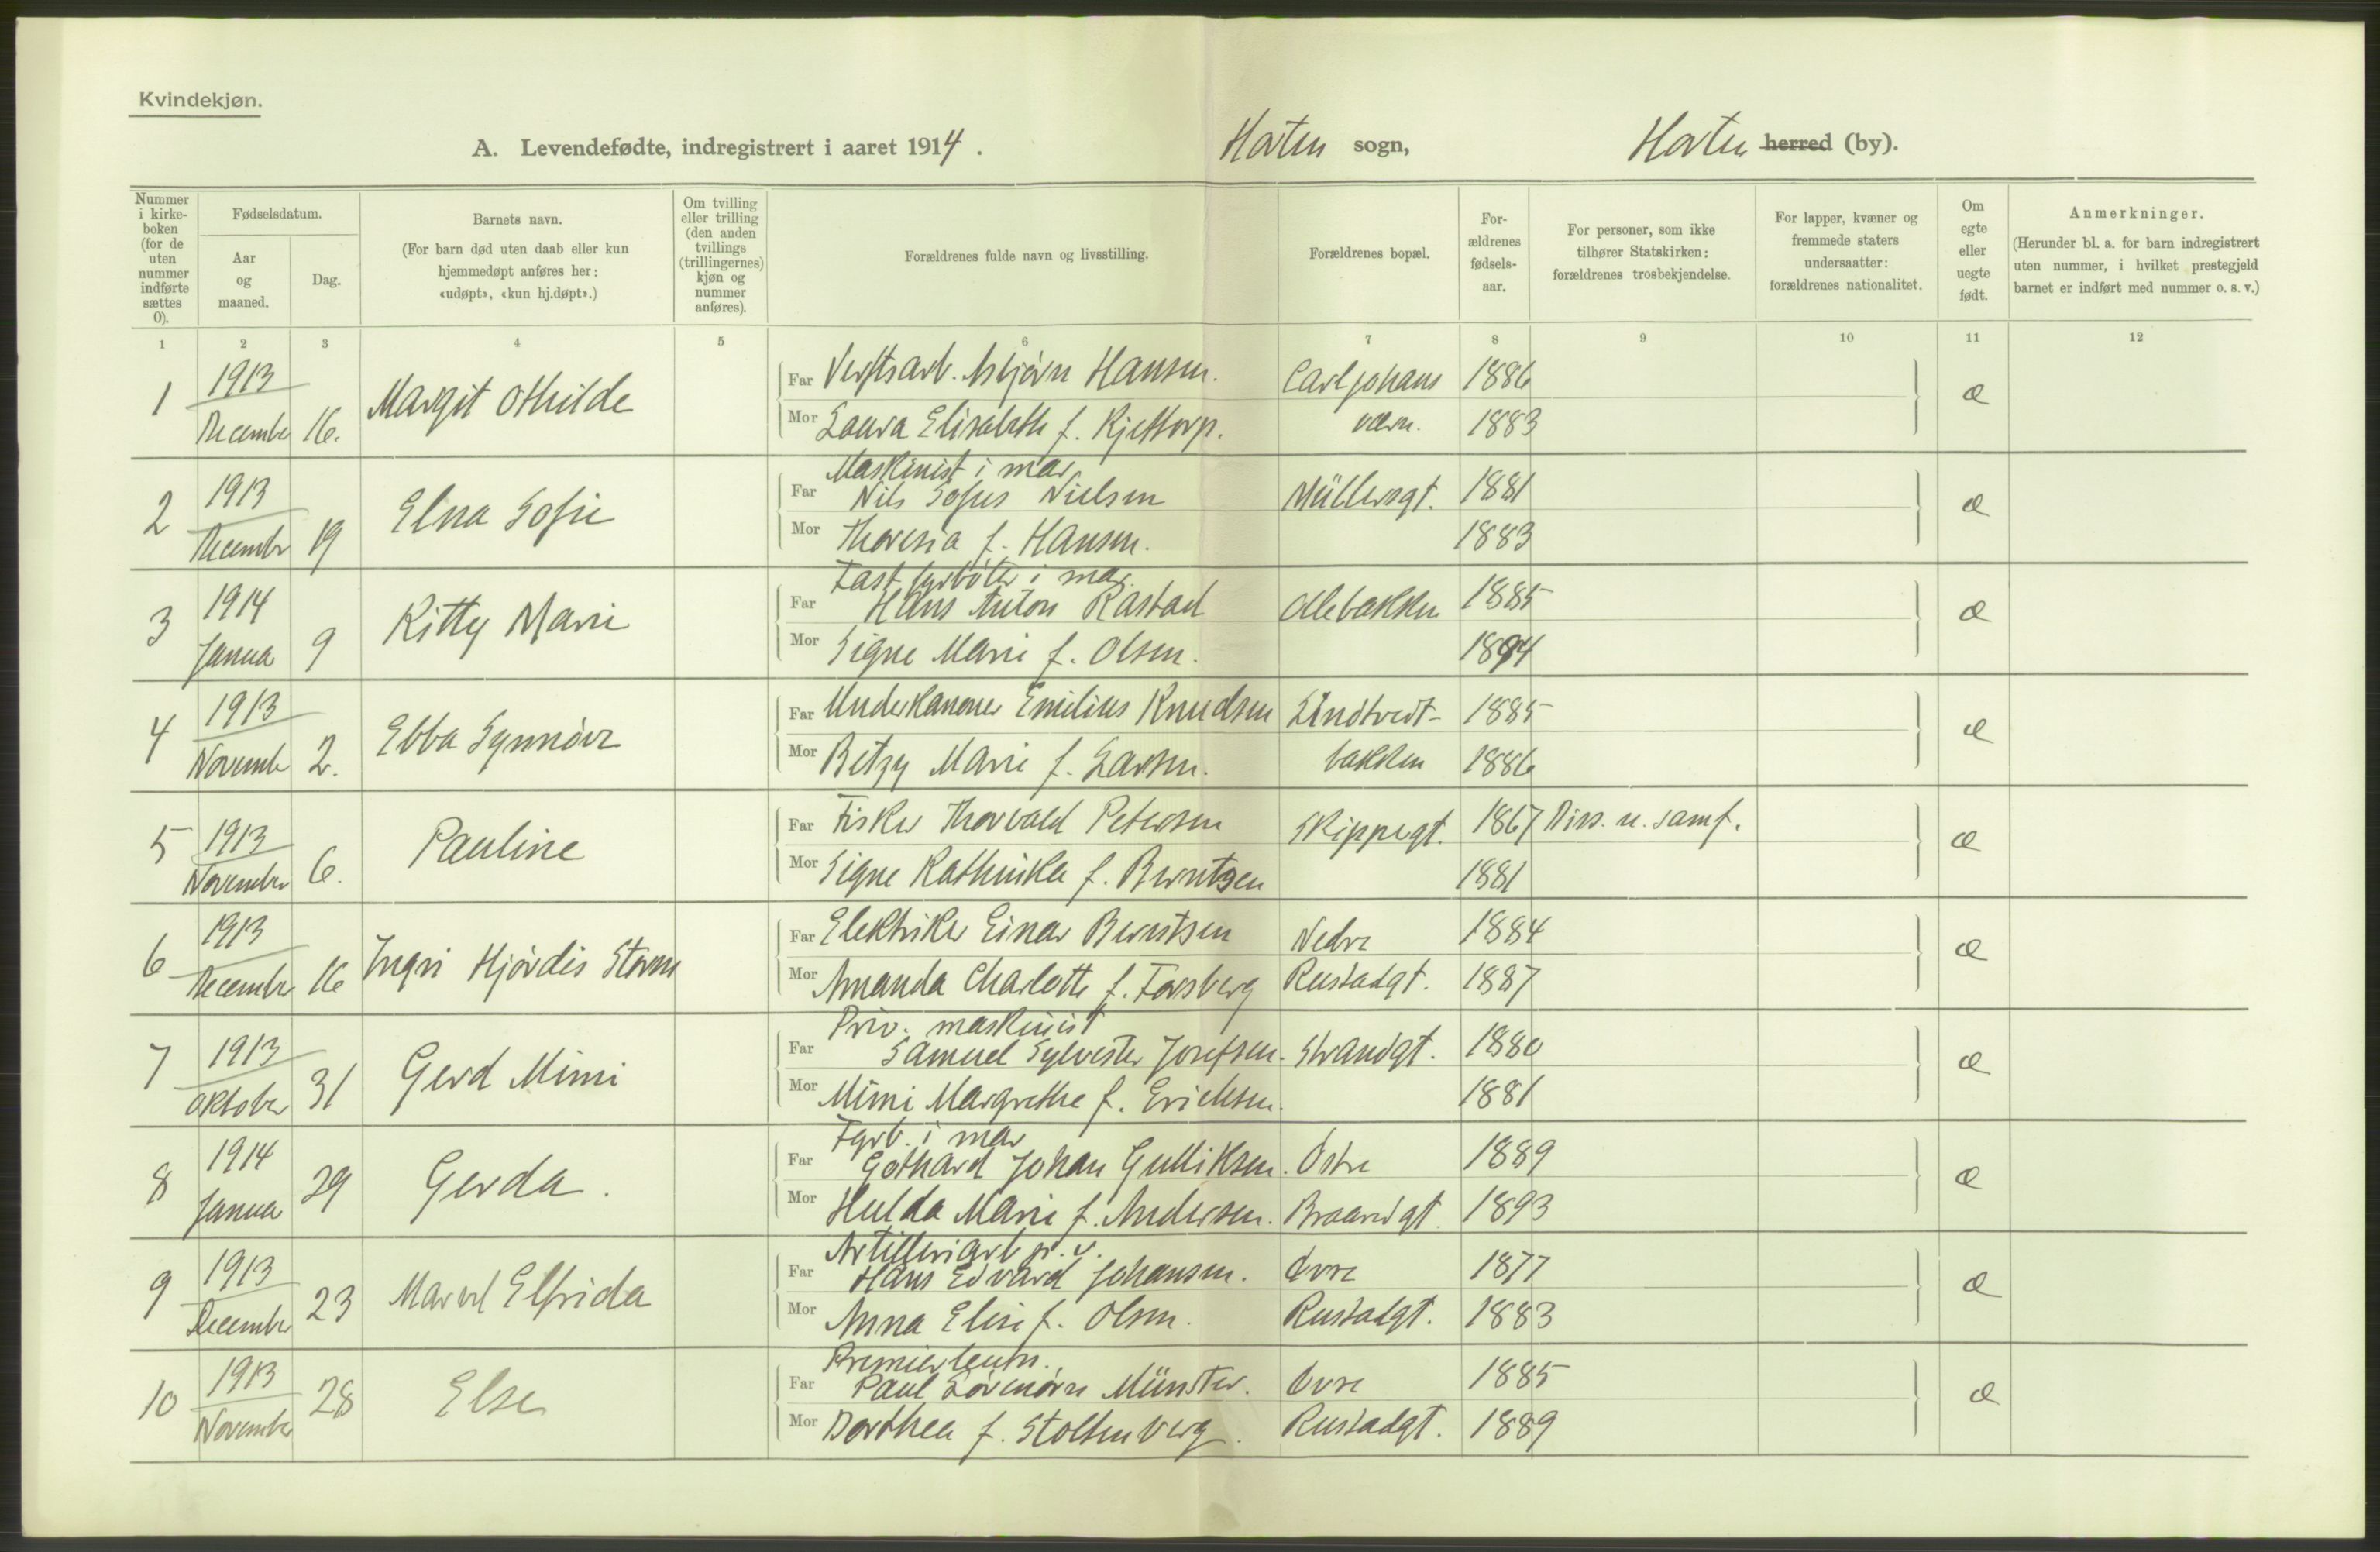 Kvindekjøn.
A. Levendefødte, indregistrert i aaret 1914. Horten sogn, Horten herred (by).
Nummer i kirke-boken (for de uten nummer indførte sættes 0).
Fødselsdatum.
Aar og maaned.
Dag.
Barnets navn.
(For barn død uten daab eller kun hjemmedøpt anføres her: «udøpt», «kun hj.døpt».)
Om tvilling eller trilling (den anden tvillings (trillingernes) kjøn og nummer anføres).
Forældrenes fulde navn og livsstilling.
Forældrenes bopæl.
For-ældrenes fødsels-aar.
For personer, som ikke tilhører Statskirken: forældrenes trosbekjendelse.
For lapper, kvæner og fremmede staters undersaatter: forældrenes nationalitet.
Om egte eller uegte født.
Anmerkninger.
(Herunder bl. a. for barn indregistrert uten nummer, i hvilket prestegjeld barnet er indført med nummer o. s. v.)
1 2 3 4 5 6 7 8 9 10 11 12
1 1913 Far Verftsarb. Asbjørn Hansen. Carljohans 1886
December 16. Margit Othilde Mor Laura Elisabeth f. Kjettorp. værn. 1883 æ
Maskinist i mar.
2 1913 Far Nils Sofus Nielsen Müllersgt. 1881
December 19 Elna Sofie Mor Theresia f. Hansen. 1883 æ
Fast fyrbøter i mar.
3 1914 Far Hans Anton Rastad Ollebakken 1885
Januar 9 Kitty Marie Mor Signe Marie f. Olsen. 1894 æ
4 1913 Far Underkanoner Emilius Knudsen Lindtvedt- 1885
November 2. Ebba Synnøve Mor Betzy Marie f. Larsen. bakken 1886 æ
5 1913 Far Fisker Thorvald Petersen Skippergt. 1867 Diss. u. samf.
November 6. Pauline Mor Signe Kathinka f. Berntsen 1881 æ
6 1913 Far Elektriker Einar Berntsen Nedre 1884
December 16 Ingri Hjørdis Storm Mor Amanda Charlotte f. Forsberg Rustadgt. 1887 æ
Priv. maskinist
7 1913 Far Samuel Sylvester Josefsen. Strandgt. 1880
Oktober 31 Gerd Mimi Mor Mimi Margrethe f. Ericksen. 1881 æ
Fyrb. i mar
8 1914 Far Gothard Johan Gulliksen. Østre 1889
Januar 29 Gerda. Mor Hulda Marie f. Andersen. Braarudgt. 1893 æ
Artilleriarb. p. v.
9 1913 Far Hans Edvard Johansen. Øvre 1877
December 23 Elfrida Mor Anna Elise f. Olsen. Rustadgt. 1883 æ
Premierleutn.
10 1913 Far Paul Løvenørn Münster. Øvre 1885
November 28 Else Mor Dorthea f. Stoltenberg. Rustadgt. 1889 æ